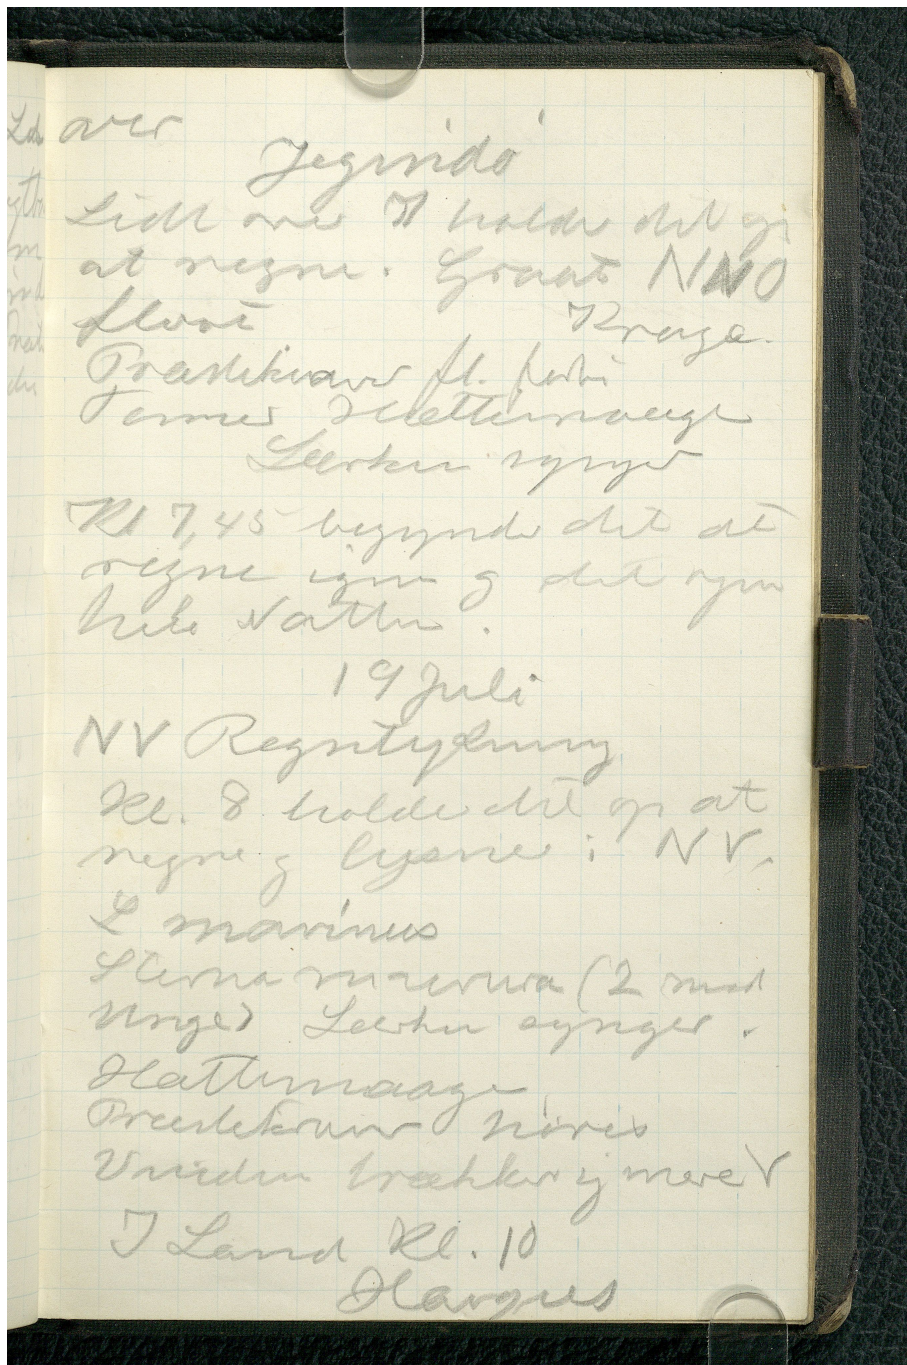 over
Jegindö
Lidt over 7 holder det op
at regne. Graat NNO
fløvt Krage.
Præstekraver fl. forbi
Terner Hættemaage
Lærken synger
Kl 7,45 begynder det at
regne igen og det regn
hele Natten.
19 Juli
NV Regntykning
Kl. 8 holder det op at
regne og lysner i NV.
L marinus
Sterna macrura (2 med
Unge) Lærken synger.
Hættemaage
Præstekraver høres
Vinden trækker ej mere V
I Land Kl. 10